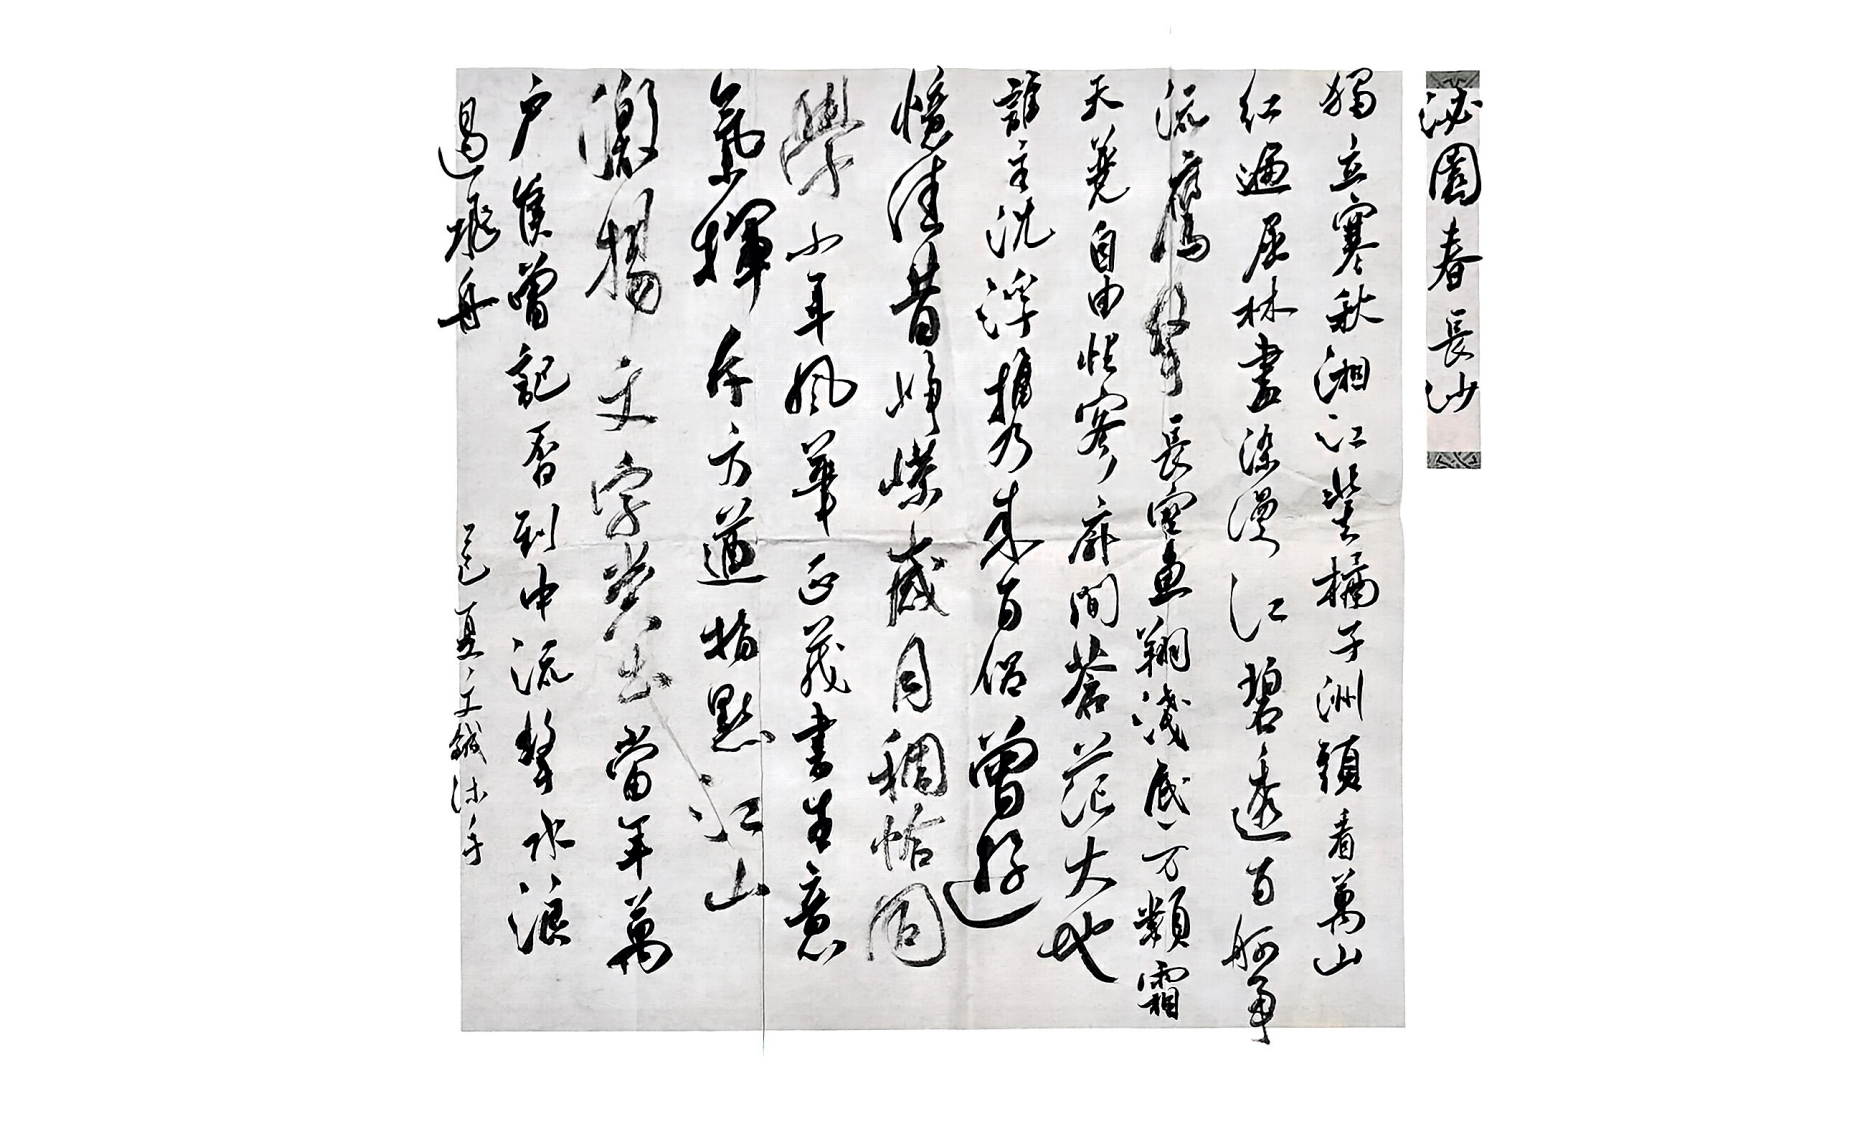 沁園春長沙
獨立寒秋湘江北去橘子洲頭看萬山
紅遍层林盡染漫江碧透百舸争
流鷹擊長空魚翔淺底万類霜
天競自由悵寥廓問蒼茫大地
誰主沉浮携來百侣曾遊
憶往昔崢嶸歲月稠恰同
學少年風華正茂書生意
氣揮斥方遒指點江山
激揚文字糞土當年萬
户侯曾記否到中流擊水浪
遏飛舟
乙巳夏文沐手